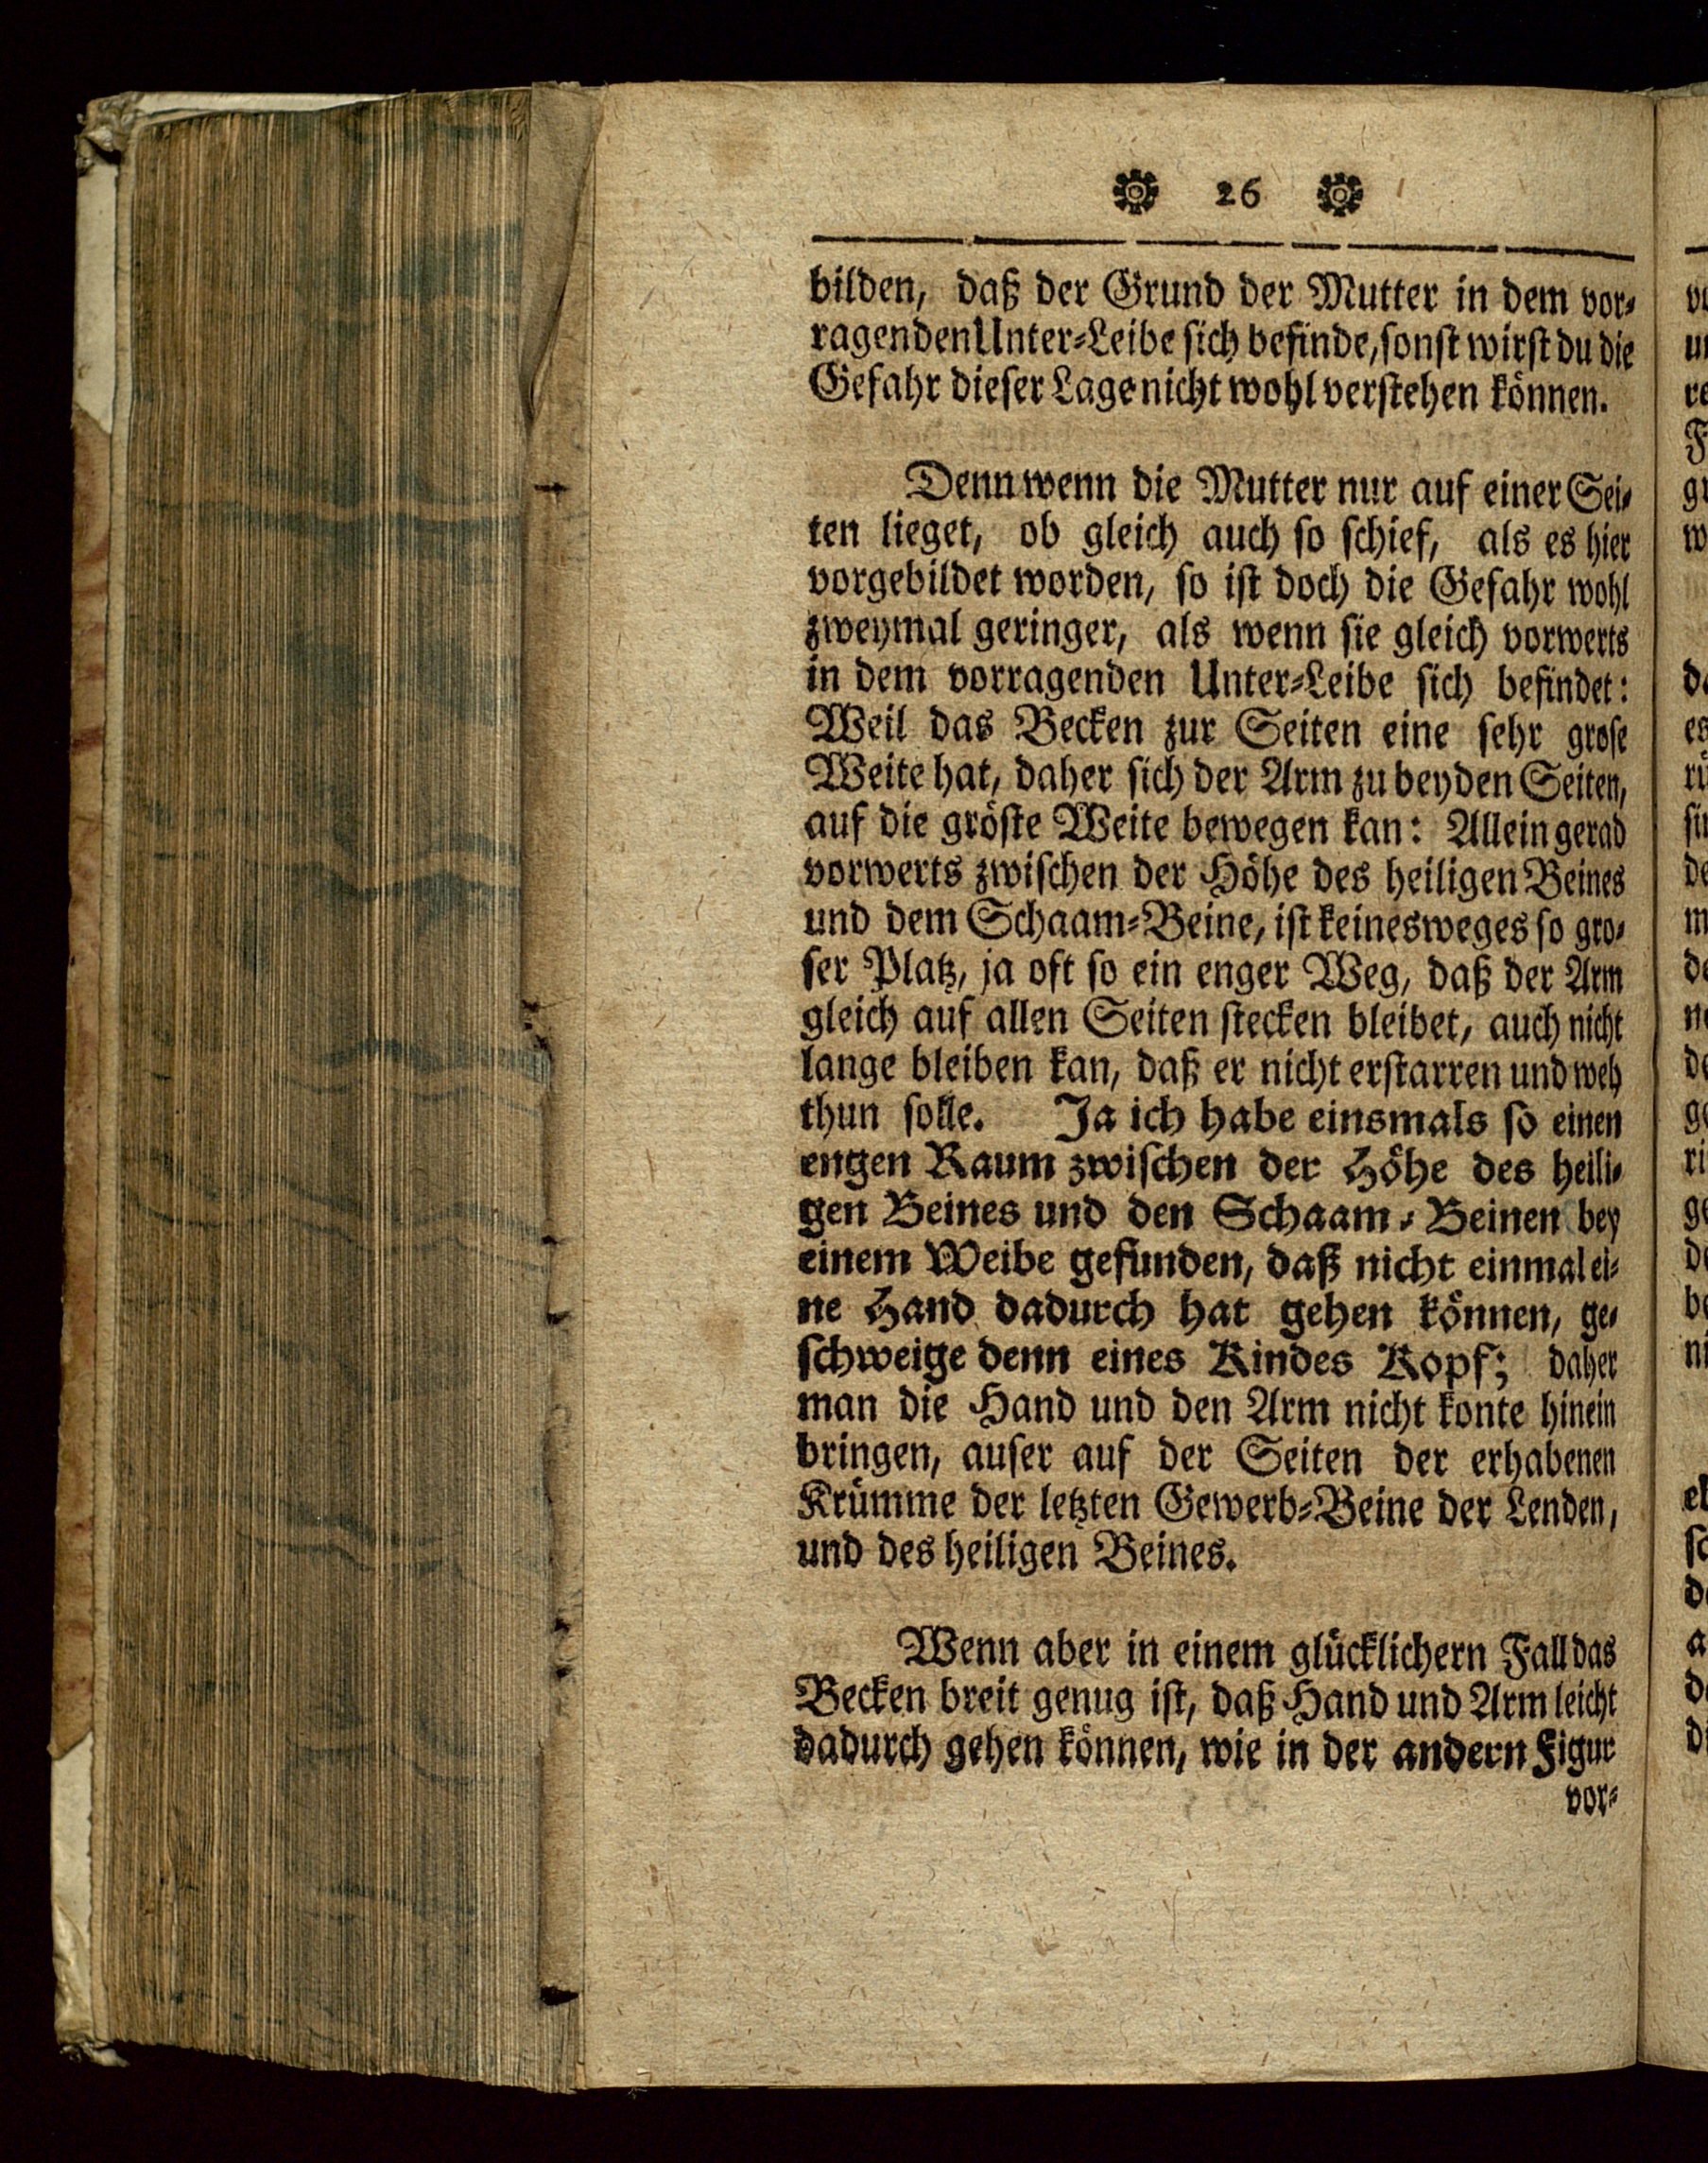 26
bilden, daß der Grund der Mutter in dem vor-
ragenden Unter-Leibe sich befinde, sonst wirst du die
Gefahr dieser Lage nicht wohl verstehen können.
Denn wenn die Mutter nur auf einer Sei-
ten lieget, ob gleich auch so schief, als es hier
vorgebildet worden, so ist doch die Gefahr wohl
zweymal geringer, als wenn sie gleich vorwerts
in dem vorragenden Unter-Leibe sich befindet:
Weil das Becken zur Seiten eine sehr grose
Weite hat, daher sich der Arm zu beyden Seiten,
auf die gröste Weite bewegen kan: Allein gerad
vorwerts zwischen der Höhe des heiligen Beines
und dem Schaam-Beine, ist keinesweges so gro-
ser Platz, ja oft so ein enger Weg, daß der Arm
gleich auf allen Seiten stecken bleibet, auch nicht
lange bleiben kan, daß er nicht erstarren und weh
thun solle. Ja ich habe einsmals so einen
engen Raum zwischen der Höhe des heili-
gen Beines und den Schaam-Beinen bey
einem Weibe gefunden, daß nicht einmal ei-
ne Hand dadurch hat gehen können, ge-
schweige denn eines Kindes Kopf; daher
man die Hand und den Arm nicht konte hinein
bringen, auser auf der Seiten der erhabenen
Krümme der letzten Gewerb-Beine der Lenden,
und des heiligen Beines.
Wenn aber in einem glücklichern Fall das
Becken breit genug ist, daß Hand und Arm leicht
dadurch gehen können, wie in der andern Figur
vor-